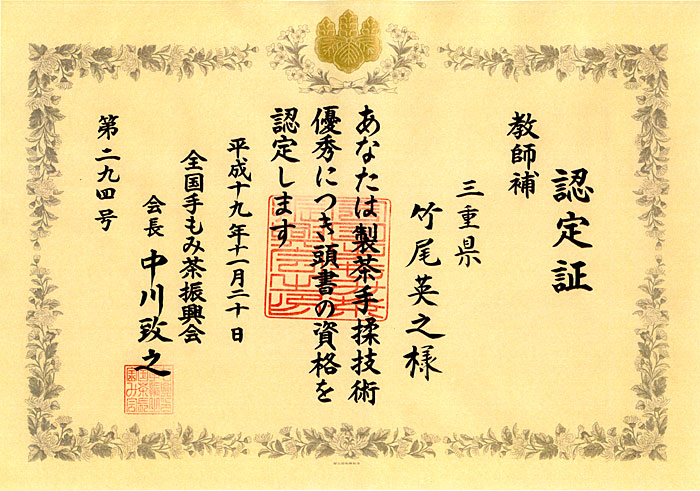 認定証
教師補
三重県
竹尾英之様
あなたは製茶手揉技術
優秀につき頭書の資格を
認定します
平成十九年十一月二十日
全国手もみ茶振興会
会長 中川致之
第二九四号